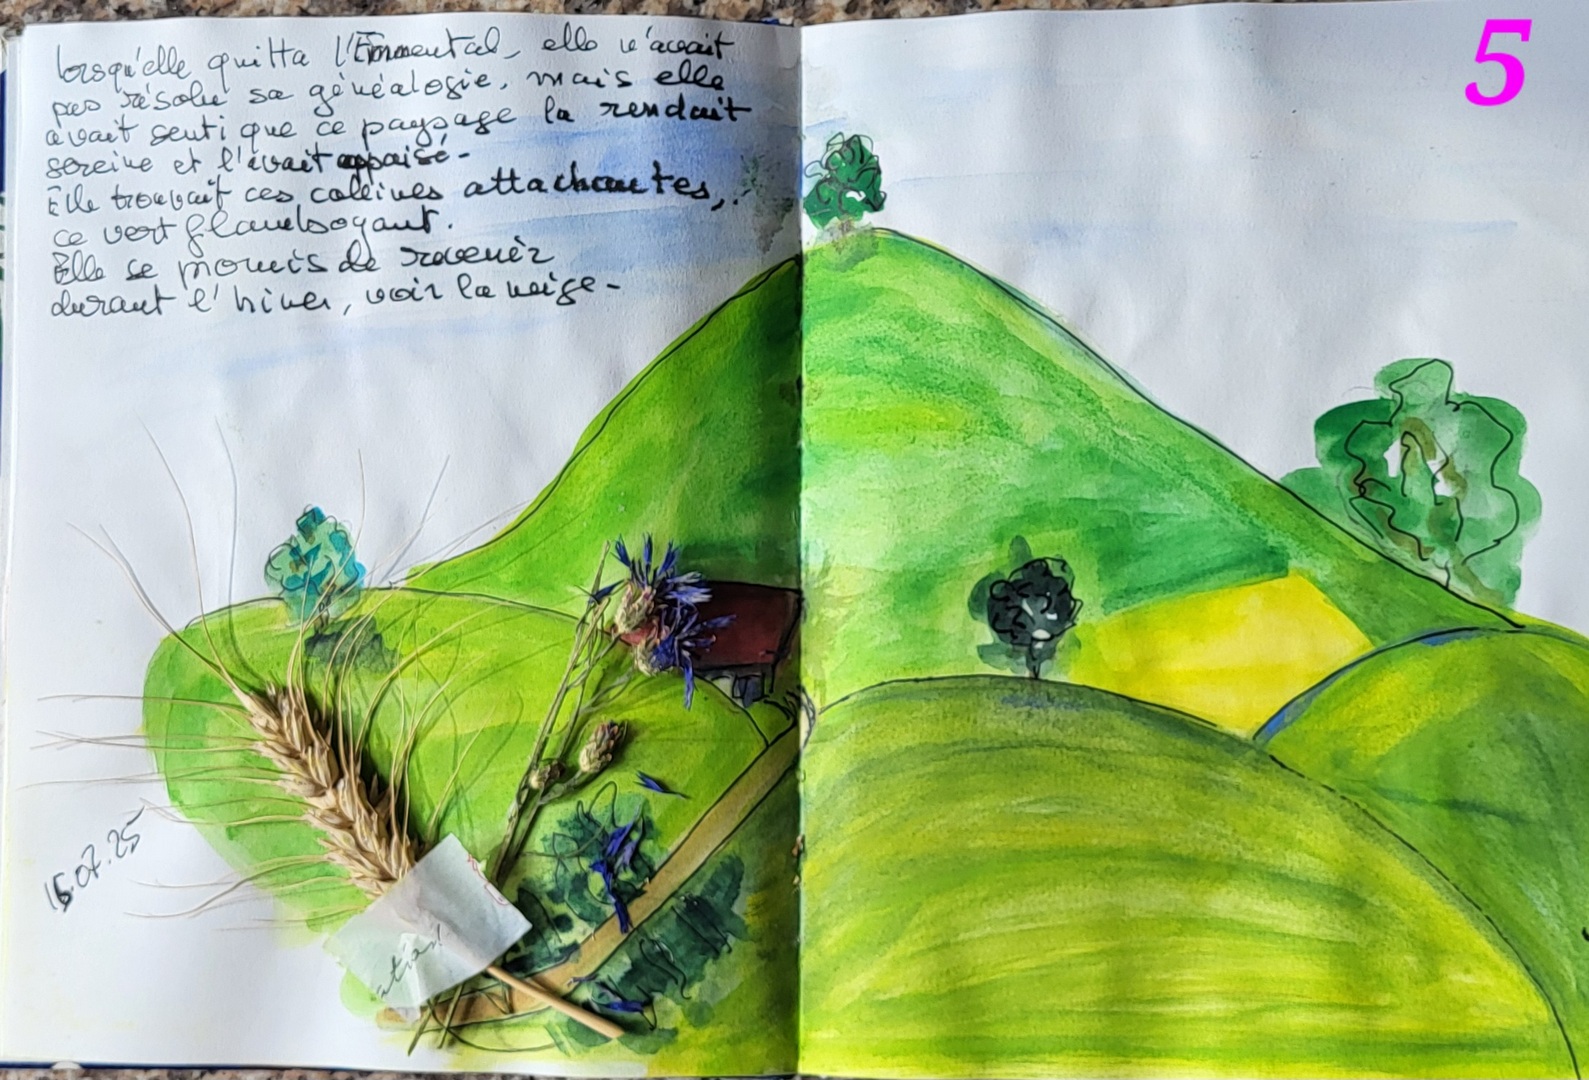 lorsqu'elle quitta l'Emmental, elle n'avait
pas résolu sa généalogie, mais elle
avait senti que ce paysage la rendait
sereine et l'avait appaisé-
Elle trouvait ces collines attachantes,
ce vert flamboyant.
Elle se promis de revenir
durant l'hiver, voir la neige-
5
16.07.25